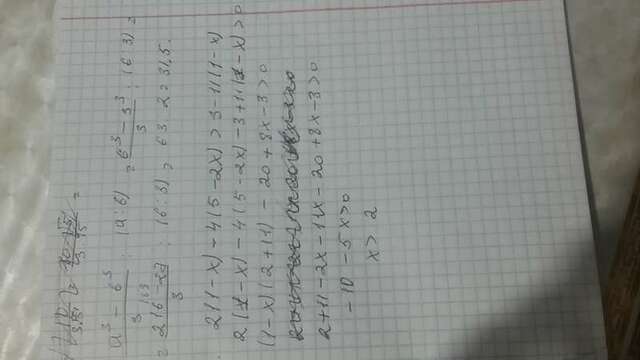 a³ - b³ / 3 : (a:b) = 6³ - 3³ / 3 : (6:3) =
= 216 - 27 / 3 : (6:3) = 63 : 2 = 31,5.
2(1-x) - 4(5-2x) > 3 - 11(1-x)
2(1-x) - 4(5-2x) - 3 + 11(1-x) > 0
(1-x)(2+11) - 20 + 8x - 3 > 0
2 + 11 - 2x - 11x - 20 + 8x - 3 > 0
-10 - 5x > 0
x > 2